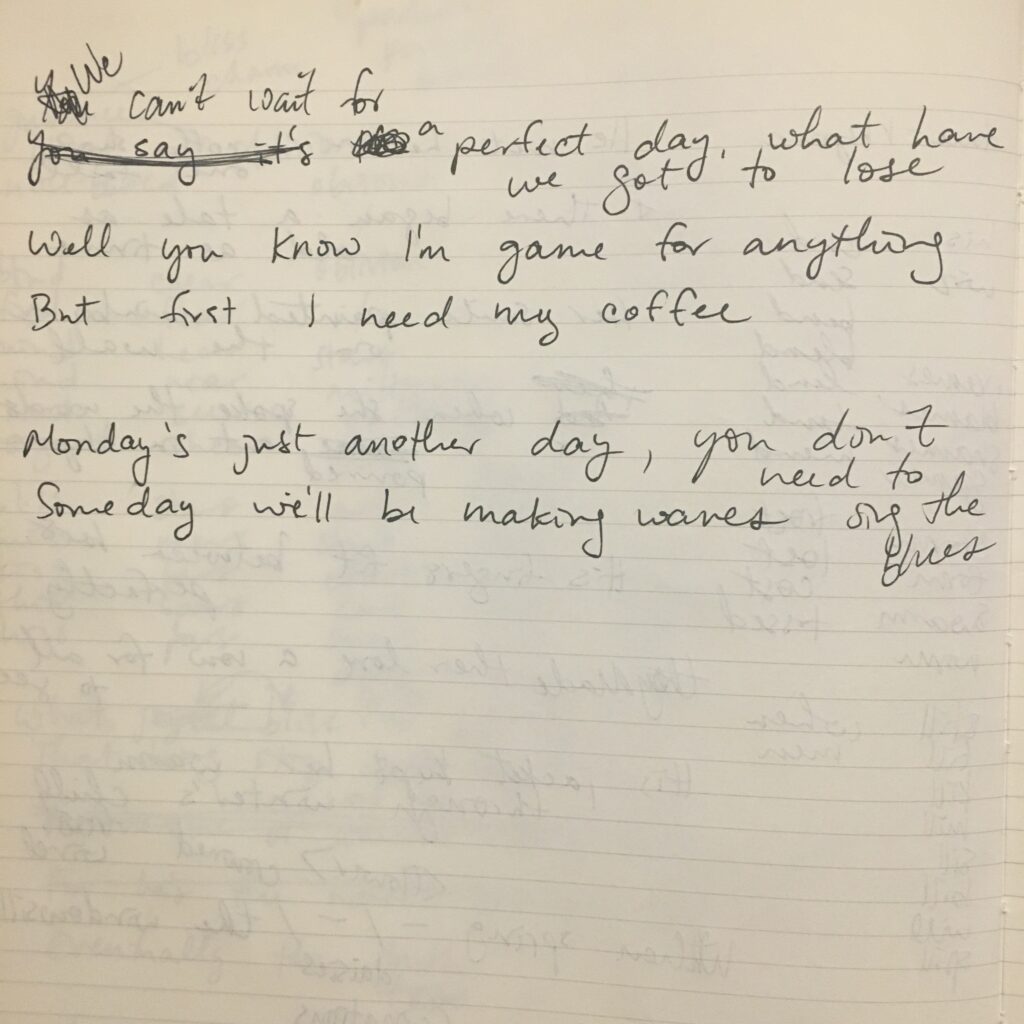 We can't wait for
you say it's a perfect day, what have
we got to lose
Well you know I'm game for anything
But first I need my coffee
Monday's just another day, you don't
need to
Someday we'll be making waves sing the
blues